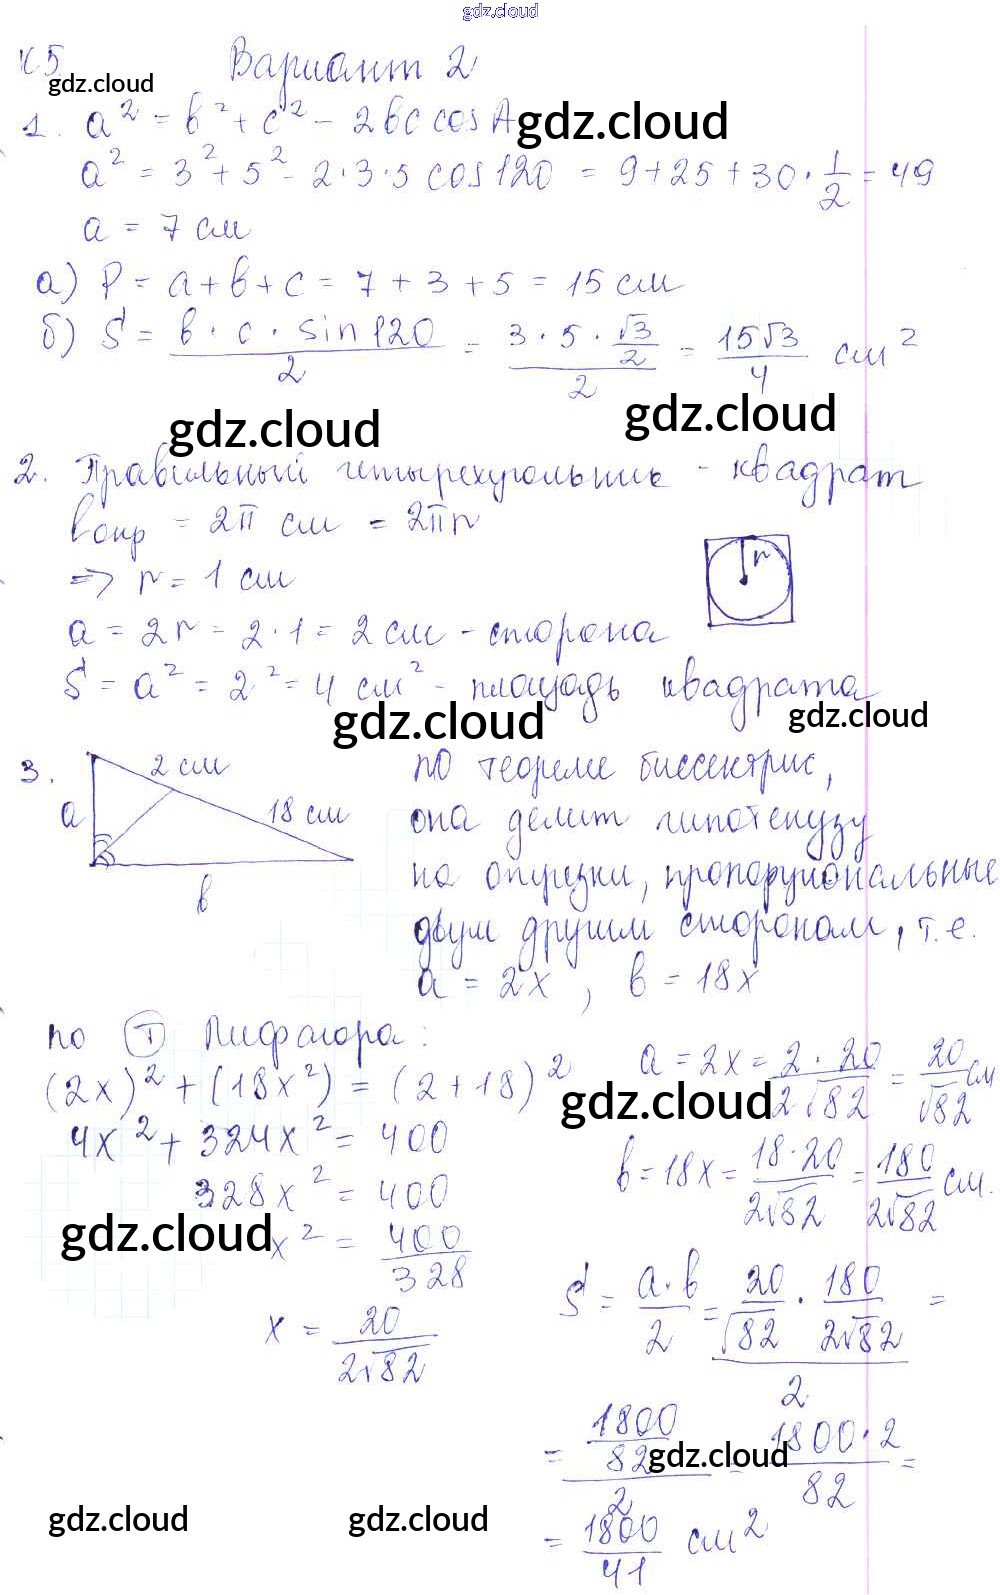 gdz.cloud
К5 Вариант 2
gdz.cloud
1. a² = b² + c² - 2bc cos A
gdz.cloud
a² = 3² + 5² - 2·3·5 cos 120 = 9+25+30·1/2 = 49
a = 7 см
а) P = a+b+c = 7+3+5 = 15 см
б) S = b·c·sin 120/2 = 3·5·√3/2/2 = 15√3/4 см²
gdz.cloud gdz.cloud
2. Правильный четырехугольник - квадрат
lокр = 2π см = 2πr
⇒ r = 1 см
r
a = 2r = 2·1 = 2 см - сторона
S = a² = 2² = 4 см² - площадь квадрата
gdz.cloud gdz.cloud
3. 2 см
18 см
a
b
по теореме биссектрис,
она делит гипотенузу
на отрезки, пропорциональные
двум другим сторонам, т.е.
a = 2x, b = 18x
по Т Пифагора:
(2x)² + (18x²) = (2+18)²
4x² + 324x² = 400
328x² = 400
gdz.cloud
x² = 400/328
x = 20/2√82
a = 2x = 2·20/2√82 = 20/√82 см
gdz.cloud
b = 18x = 18·20/2√82 = 180/2√82 см.
S = a·b/2 = 20/√82 · 180/2√82/2 =
= 1800/82/2 = 1800·2/82 =
gdz.cloud
= 1800/41 см²
gdz.cloud gdz.cloud